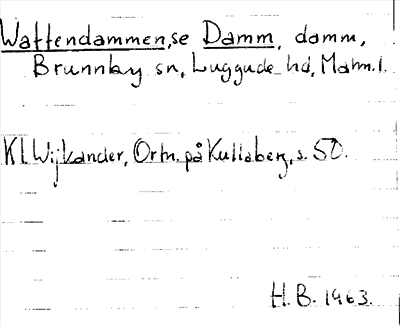 Wattendammen, se Damm, damm,
Brunnby sn, Luggude hd, Malm. l.
Kl. Wijkander, Ortn. på Kullaberg, s. 50.
H. B. 1963.